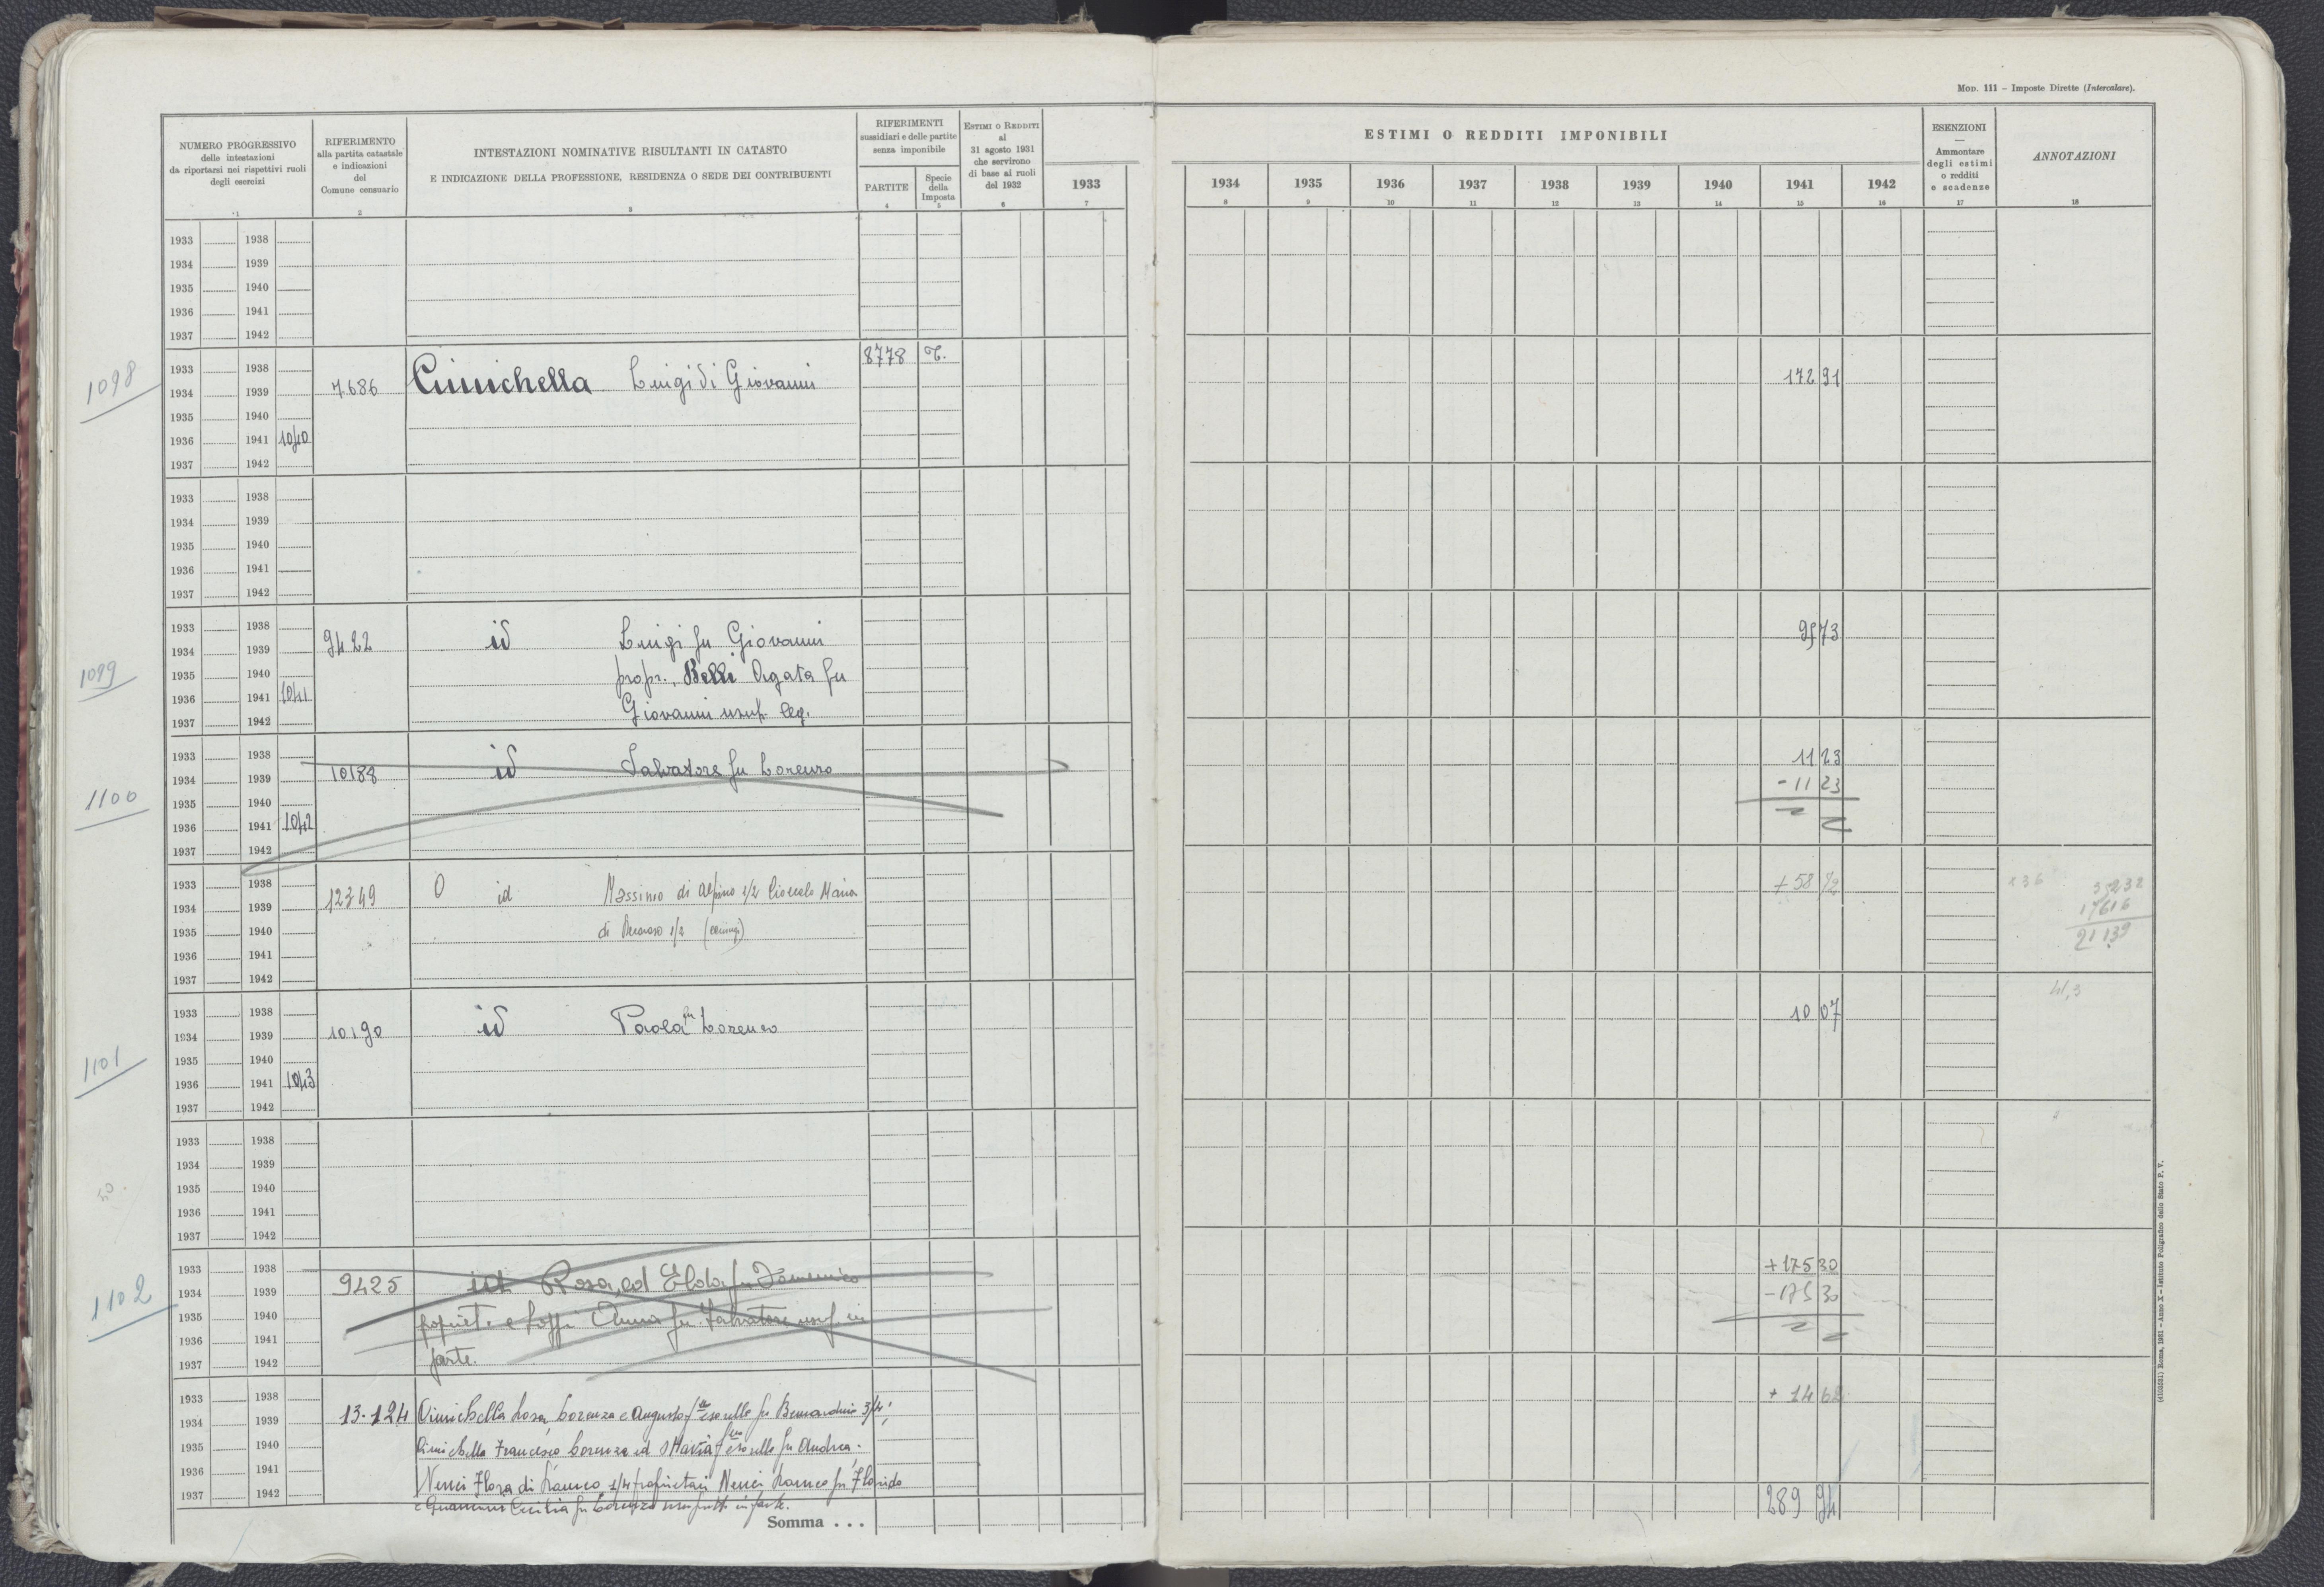 MOD. 111 – Imposte Dirette (Intercalare).
NUMERO PROGRESSIVO
delle intestazioni
da riportarsi nei rispettivi ruoli
degli esercizi
1
RIFERIMENTO
alla partita catastale
e indicazioni
del
Comune censuario
2
INTESTAZIONI NOMINATIVE RISULTANTI IN CATASTO
E INDICAZIONE DELLA PROFESSIONE, RESIDENZA O SEDE DEI CONTRIBUENTI
3
RIFERIMENTI
sussidiari e delle partite
senza imponibile
PARTITE
4
Specie
della
Imposta
5
ESTIMI O REDDITI
al
31 agosto 1931
che servirono
di base ai ruoli
del 1932
6
1933
7
ESTIMI O REDDITI IMPONIBILI
1934 1935 1936 1937 1938 1939 1940 1941 1942
8 9 10 11 12 13 14 15 16
ESENZIONI
—
Ammontare
degli estimi
o redditi
e scadenze
17
ANNOTAZIONI
18
1933 1938
1934 1939
1935 1940
1936 1941
1937 1942
8778 T.
1933 1938
1098 1934 1939 7686 Cimichella Luigi di Giovanni 172 91
1935 1940
1936 1941 1040
1937 1942
1933 1938
1934 1939
1935 1940
1936 1941
1937 1942
1933 1938
1934 1939 9422 id Luigi fu Giovanni 95 73
1099 1935 1940 propr. Belli Agata fu
1936 1941 1041
1937 1942 Giovanni usuf. leg.
1933 1938 11 23
1934 1939 10188 id Salvatore fu Lorenzo
- 11 23
1100 1935 1940
1936 1941 1042
1937 1942
1933 1938
1934 1939 12349 0 id Massimo di Alpino 1/2 Maria + 58
1935 1940 di 1/2 (coniugi)
17616
21139
1936 1941
1937 1942
41,3
1933 1938
1934 1939 10190 id Paola fu Lorenzo 10 07
1101 1935 1940
1936 1941 1043
1937 1942
1933 1938
1934 1939
1935 1940
1936 1941
1937 1942
1933 1938 + 175 30
1934 1939 9425 id Rosa, ed Elda fu Domenico
- 175 30
1102 1935 1940 propriet. e Anna fu Salvatore usuf. in
1936 1941
1937 1942 parte.
1933 1938 + 14 62
1934 1939 13.124 Cimichella Rosa Lorenza e Augusta sorelle fu Bernardino 3/4;
1935 1940 Cimichella Francesco Lorenza ed Maria sorelle fu Andrea.
1936 1941
1937 1942 Nenci Flora di Franco 1/4 proprietari Nenci Franco fu Florido
e Cecilia fu Lorenzo usufrutt. in parte.
Somma . . . 289 94
(4102031) Roma, 1931 – Anno X – Istituto Poligrafico dello Stato P. V.